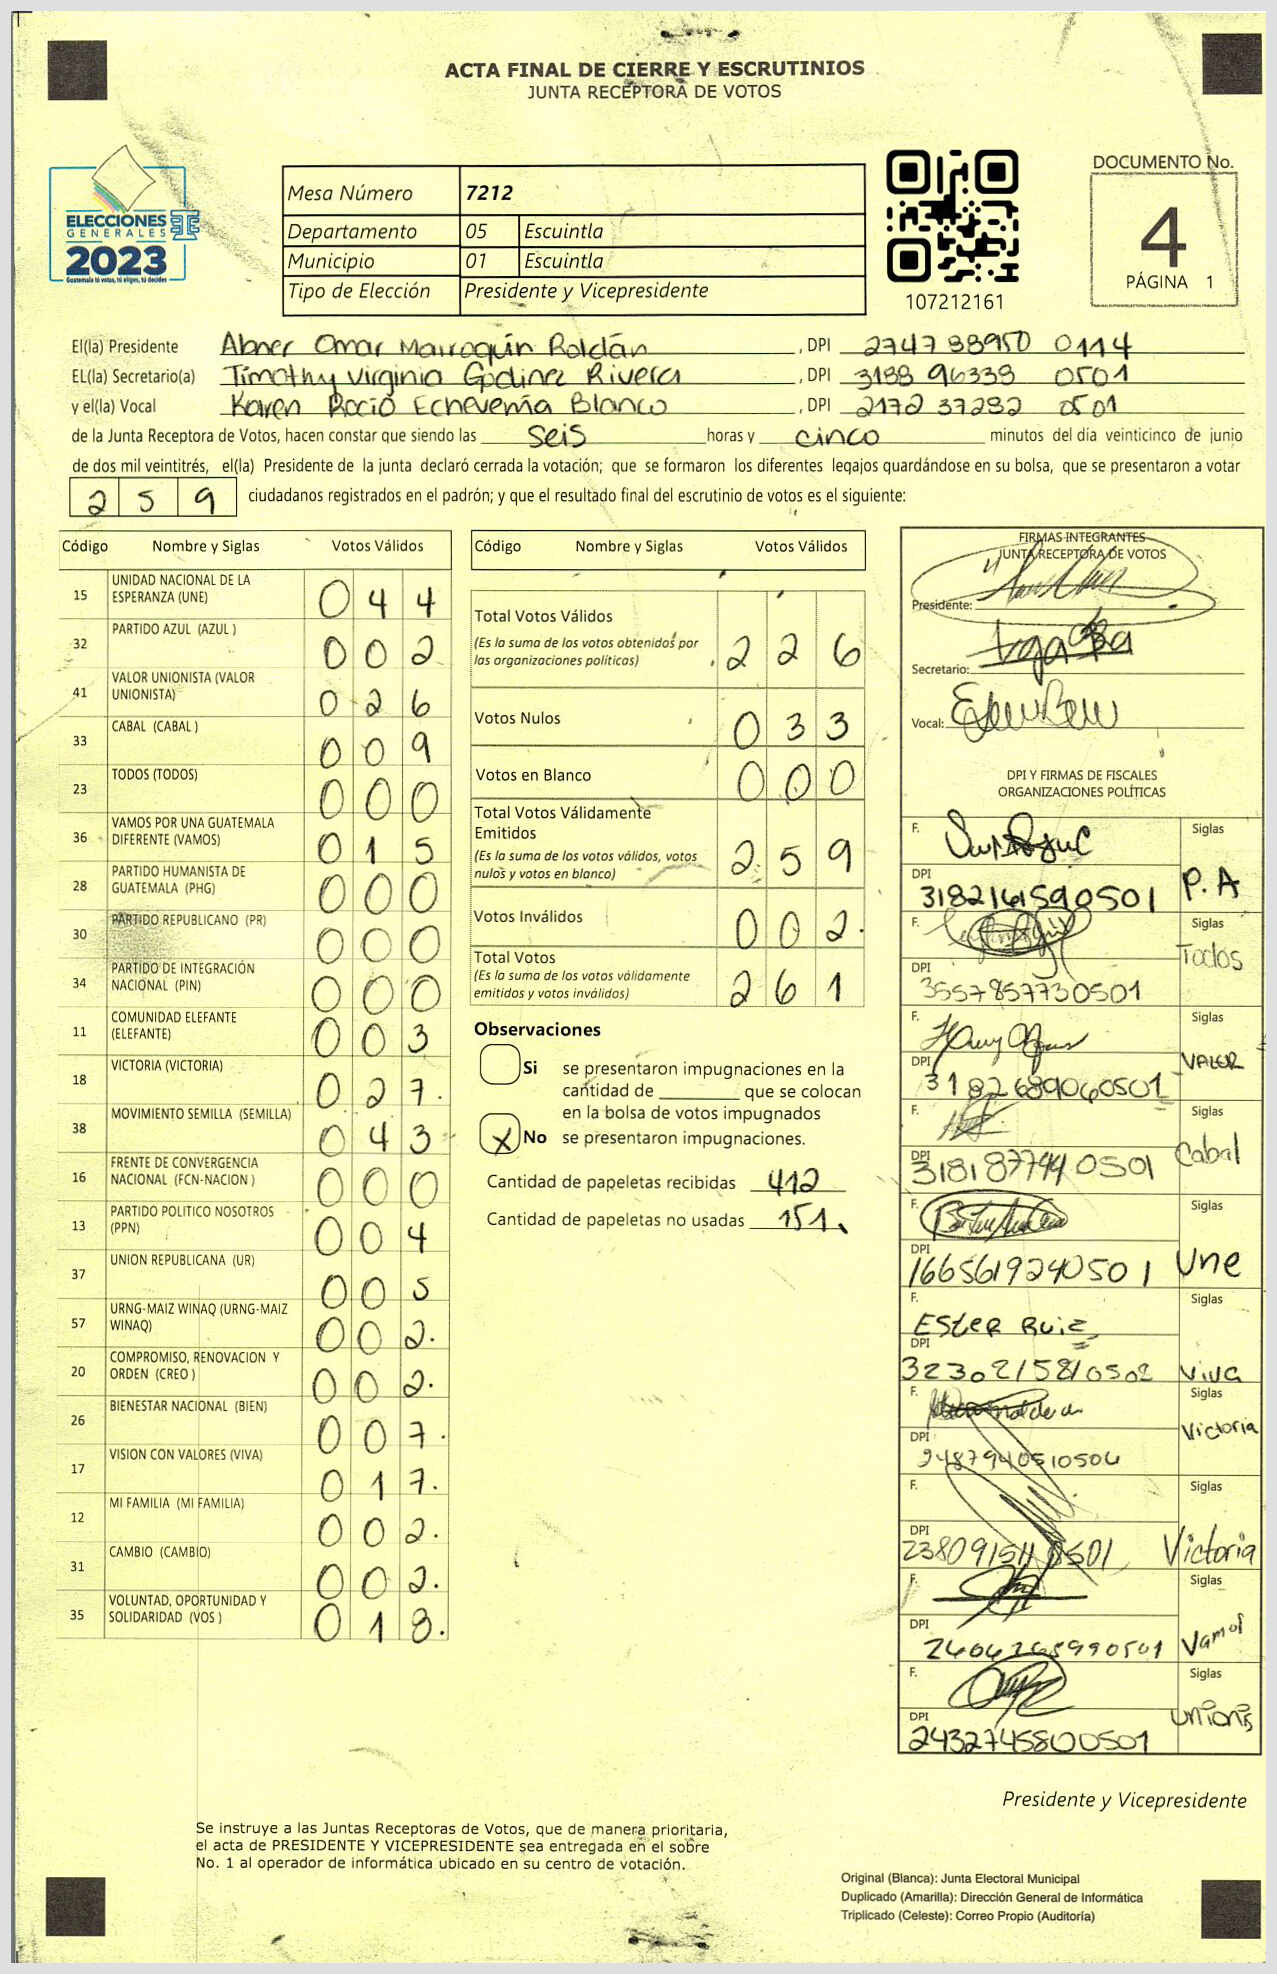 ACTA FINAL DE CIERRE Y ESCRUTINIOS
JUNTA RECEPTORA DE VOTOS
ELECCIONES
GENERALES
2023
Guatemala tú votas, tú eliges, tú decides
Mesa Número 7212
Departamento 05 Escuintla
Municipio 01 Escuintla
Tipo de Elección Presidente y Vicepresidente
107212161
DOCUMENTO No.
4
PÁGINA 1
El(la) Presidente Abner Omar Marroquín Roldán, DPI 2747 38950 0114
EL(la) Secretario(a) Timothy Virginia Godinez Rivera, DPI 3188 96338 0501
y el(la) Vocal Karen Rocío Echeverría Blanco, DPI 2172 37282 0501
de la Junta Receptora de Votos, hacen constar que siendo las seis horas y cinco minutos del día veinticinco de junio
de dos mil veintitrés, el(la) Presidente de la junta declaró cerrada la votación; que se formaron los diferentes legajos guardándose en su bolsa, que se presentaron a votar
259 ciudadanos registrados en el padrón; y que el resultado final del escrutinio de votos es el siguiente:
Código Nombre y Siglas Votos Válidos
15 UNIDAD NACIONAL DE LA ESPERANZA (UNE) 044
32 PARTIDO AZUL (AZUL ) 002
41 VALOR UNIONISTA (VALOR UNIONISTA) 026
33 CABAL (CABAL ) 009
23 TODOS (TODOS) 000
36 VAMOS POR UNA GUATEMALA DIFERENTE (VAMOS) 015
28 PARTIDO HUMANISTA DE GUATEMALA (PHG) 000
30 PARTIDO REPUBLICANO (PR) 000
34 PARTIDO DE INTEGRACIÓN NACIONAL (PIN) 000
11 COMUNIDAD ELEFANTE (ELEFANTE) 003
18 VICTORIA (VICTORIA) 027.
38 MOVIMIENTO SEMILLA (SEMILLA) 043
16 FRENTE DE CONVERGENCIA NACIONAL (FCN-NACION ) 000
13 PARTIDO POLITICO NOSOTROS (PPN) 004
37 UNION REPUBLICANA (UR) 005
57 URNG-MAIZ WINAQ (URNG-MAIZ WINAQ) 002.
20 COMPROMISO, RENOVACION Y ORDEN (CREO ) 002.
26 BIENESTAR NACIONAL (BIEN) 007.
17 VISION CON VALORES (VIVA) 017.
12 MI FAMILIA (MI FAMILIA) 002.
31 CAMBIO (CAMBIO) 002.
35 VOLUNTAD, OPORTUNIDAD Y SOLIDARIDAD (VOS ) 018.
Código Nombre y Siglas Votos Válidos
Total Votos Válidos 226
(Es la suma de los votos obtenidos por las organizaciones políticas)
Votos Nulos 033
Votos en Blanco 000
Total Votos Válidamente Emitidos 259
(Es la suma de los votos válidos, votos nulos y votos en blanco)
Votos Inválidos 002.
Total Votos 261
(Es la suma de los votos válidamente emitidos y votos inválidos)
Observaciones
Si se presentaron impugnaciones en la
cantidad de ________ que se colocan
en la bolsa de votos impugnados
X No se presentaron impugnaciones.
Cantidad de papeletas recibidas 412
Cantidad de papeletas no usadas 151
FIRMAS INTEGRANTES
JUNTA RECEPTORA DE VOTOS
Presidente:
Secretario:
Vocal:
DPI Y FIRMAS DE FISCALES
ORGANIZACIONES POLÍTICAS
F. Siglas
DPI 3182161590501 P.A
F. Siglas
DPI 3557857730501 Todos
F. Siglas
DPI 3182689060501 VALOR
F. Siglas
DPI 3181877440501 Cabal
F. Siglas
DPI 1665619240501 Une
F. Ester Ruiz Siglas
DPI 3230215810502 Viva
F. Siglas
DPI 2487940510506 Victoria
F. Siglas
DPI Victoria
F. Siglas
DPI Vamos
F. Siglas
DPI 2432745800501 Unionis
Presidente y Vicepresidente
Se instruye a las Juntas Receptoras de Votos, que de manera prioritaria,
el acta de PRESIDENTE Y VICEPRESIDENTE sea entregada en el sobre
No. 1 al operador de informática ubicado en su centro de votación.
Original (Blanca): Junta Electoral Municipal
Duplicado (Amarilla): Dirección General de Informática
Triplicado (Celeste): Correo Propio (Auditoría)